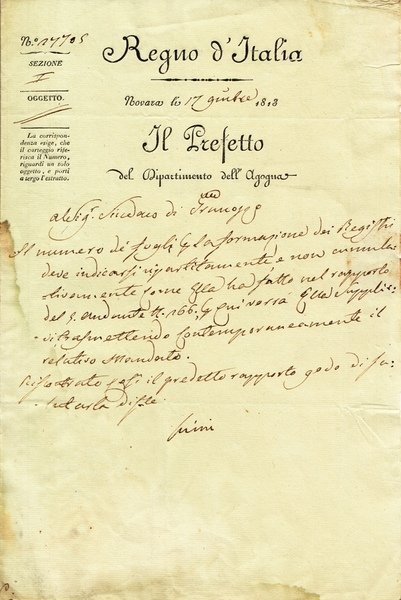 N.º 17705
SEZIONE
I
OGGETTO.
La corrispondenza esige, che
il carteggio riferisca il Numero,
riguardi un solo
oggetto, e porti
a tergo l'estratto.
Regno d'Italia
Novara li 17 1813
Il Prefetto
del Dipartimento dell'Agogna
al Sig.r Sindaco di
Il numero de' fogli la formazione dei Registri
deve indicarsi ripartitamente, e non cumula
tivamente come Ella ha fatto nel rapporto
del 5 andante N. 166,
trasmettendo contemporaneamente il
relativo Mandato.
il predetto rapporto godo di sa-
lutarla